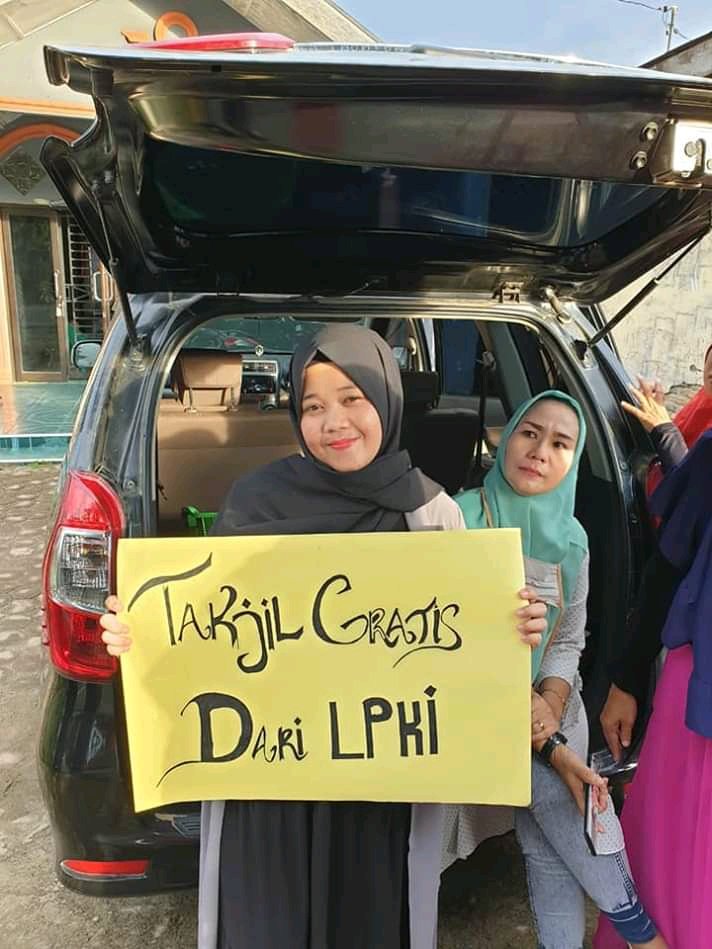 Takjil Gratis
Dari LPKI